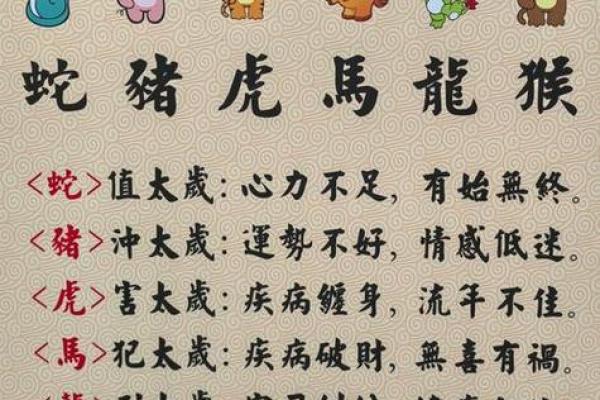 蛇 豬 虎 馬 龍 猴
<蛇>值太歲：心力不足，有始無終。
<豬>沖太歲：運勢不好，情感低迷。
<虎>害太歲：疾病纏身，流年不佳。
<馬>犯太歲：疾病破財，無喜有禍。